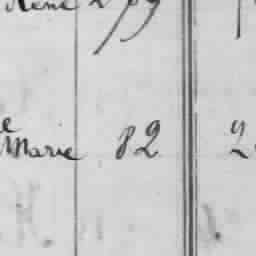 René 279
e
Marie 82 2